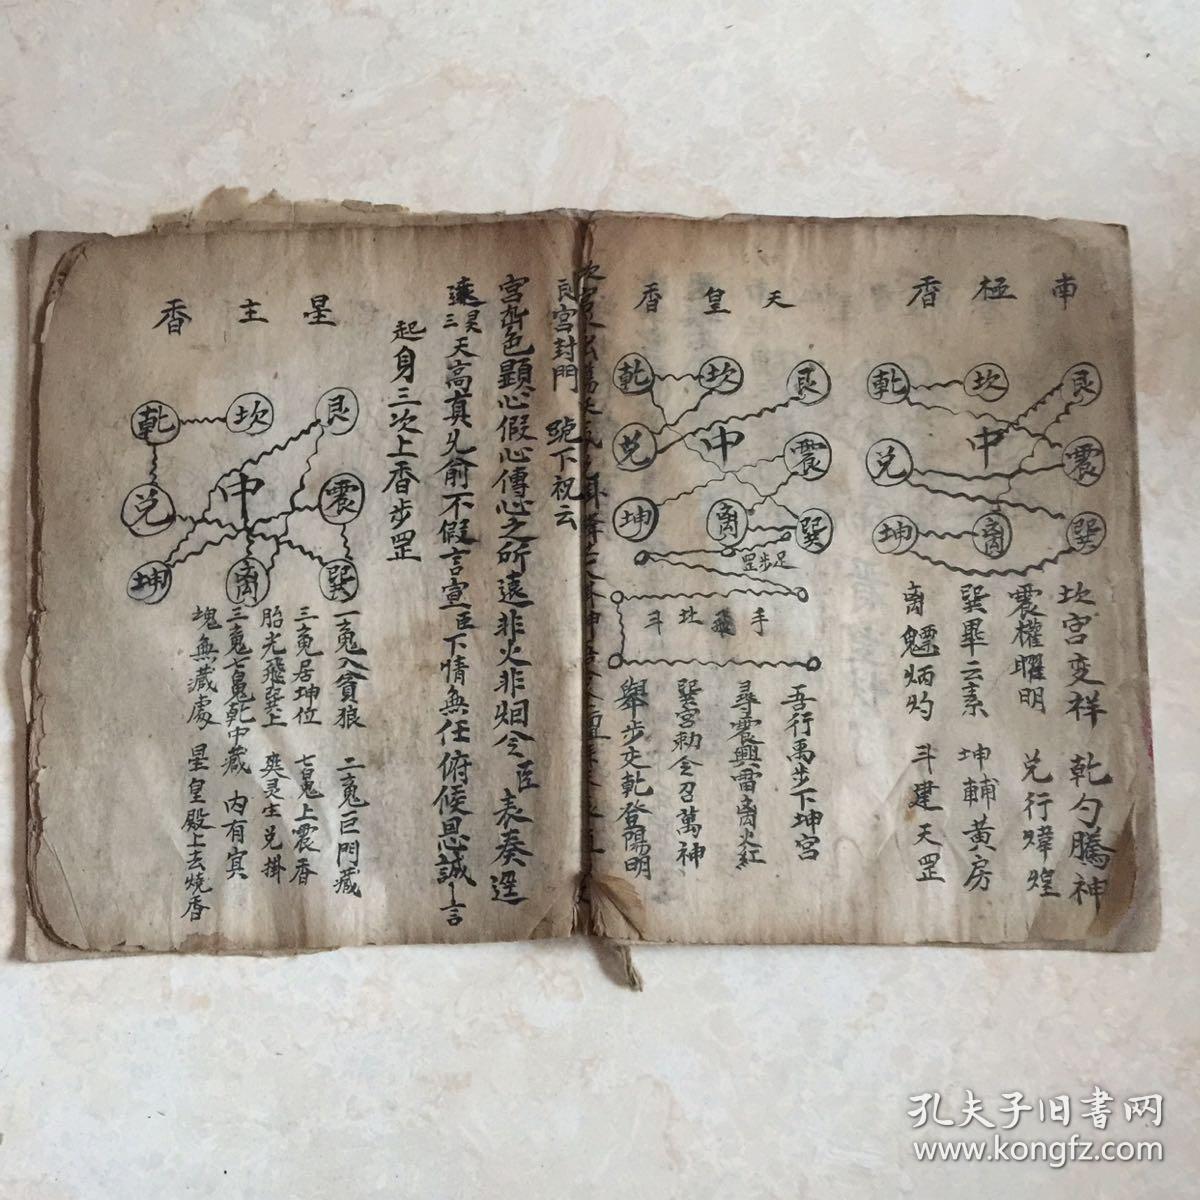 南極香
乾 坎 艮
兌 中 震
坤 離 巽
坎宮变祥 乾勺騰神
震權曜明 兌行煒煌
巽畢云素 坤輔黃房
离魒炳灼 斗建天罡
天皇香
乾 坎 艮
兌 中 震
坤 离 巽
足步罡
手飛北斗
吾行禹步下坤宮
尋震興雷离火红
巽宮勅令召萬神
舉步走乾登陽明
艮宮封門 號下祝云
宮齐色顯心假心傳心之所遠非火非烟令臣 表奏逕
遠三炅天高真先俞不假言宣臣下情無任俯候恩誠言
起身三次上香步罡
星主香
乾 坎 艮
兌 中 震
坤 离 巽
一䰟入貪狼 二䰟巨門藏
三䰟居坤位 七鬼上震香
胎光飛巽上 爽灵生兌掛
三䰟七鬼乾中藏 内有㝠
塊無藏處 星皇殿上去燒香
孔夫子旧书网
www.kongfz.com